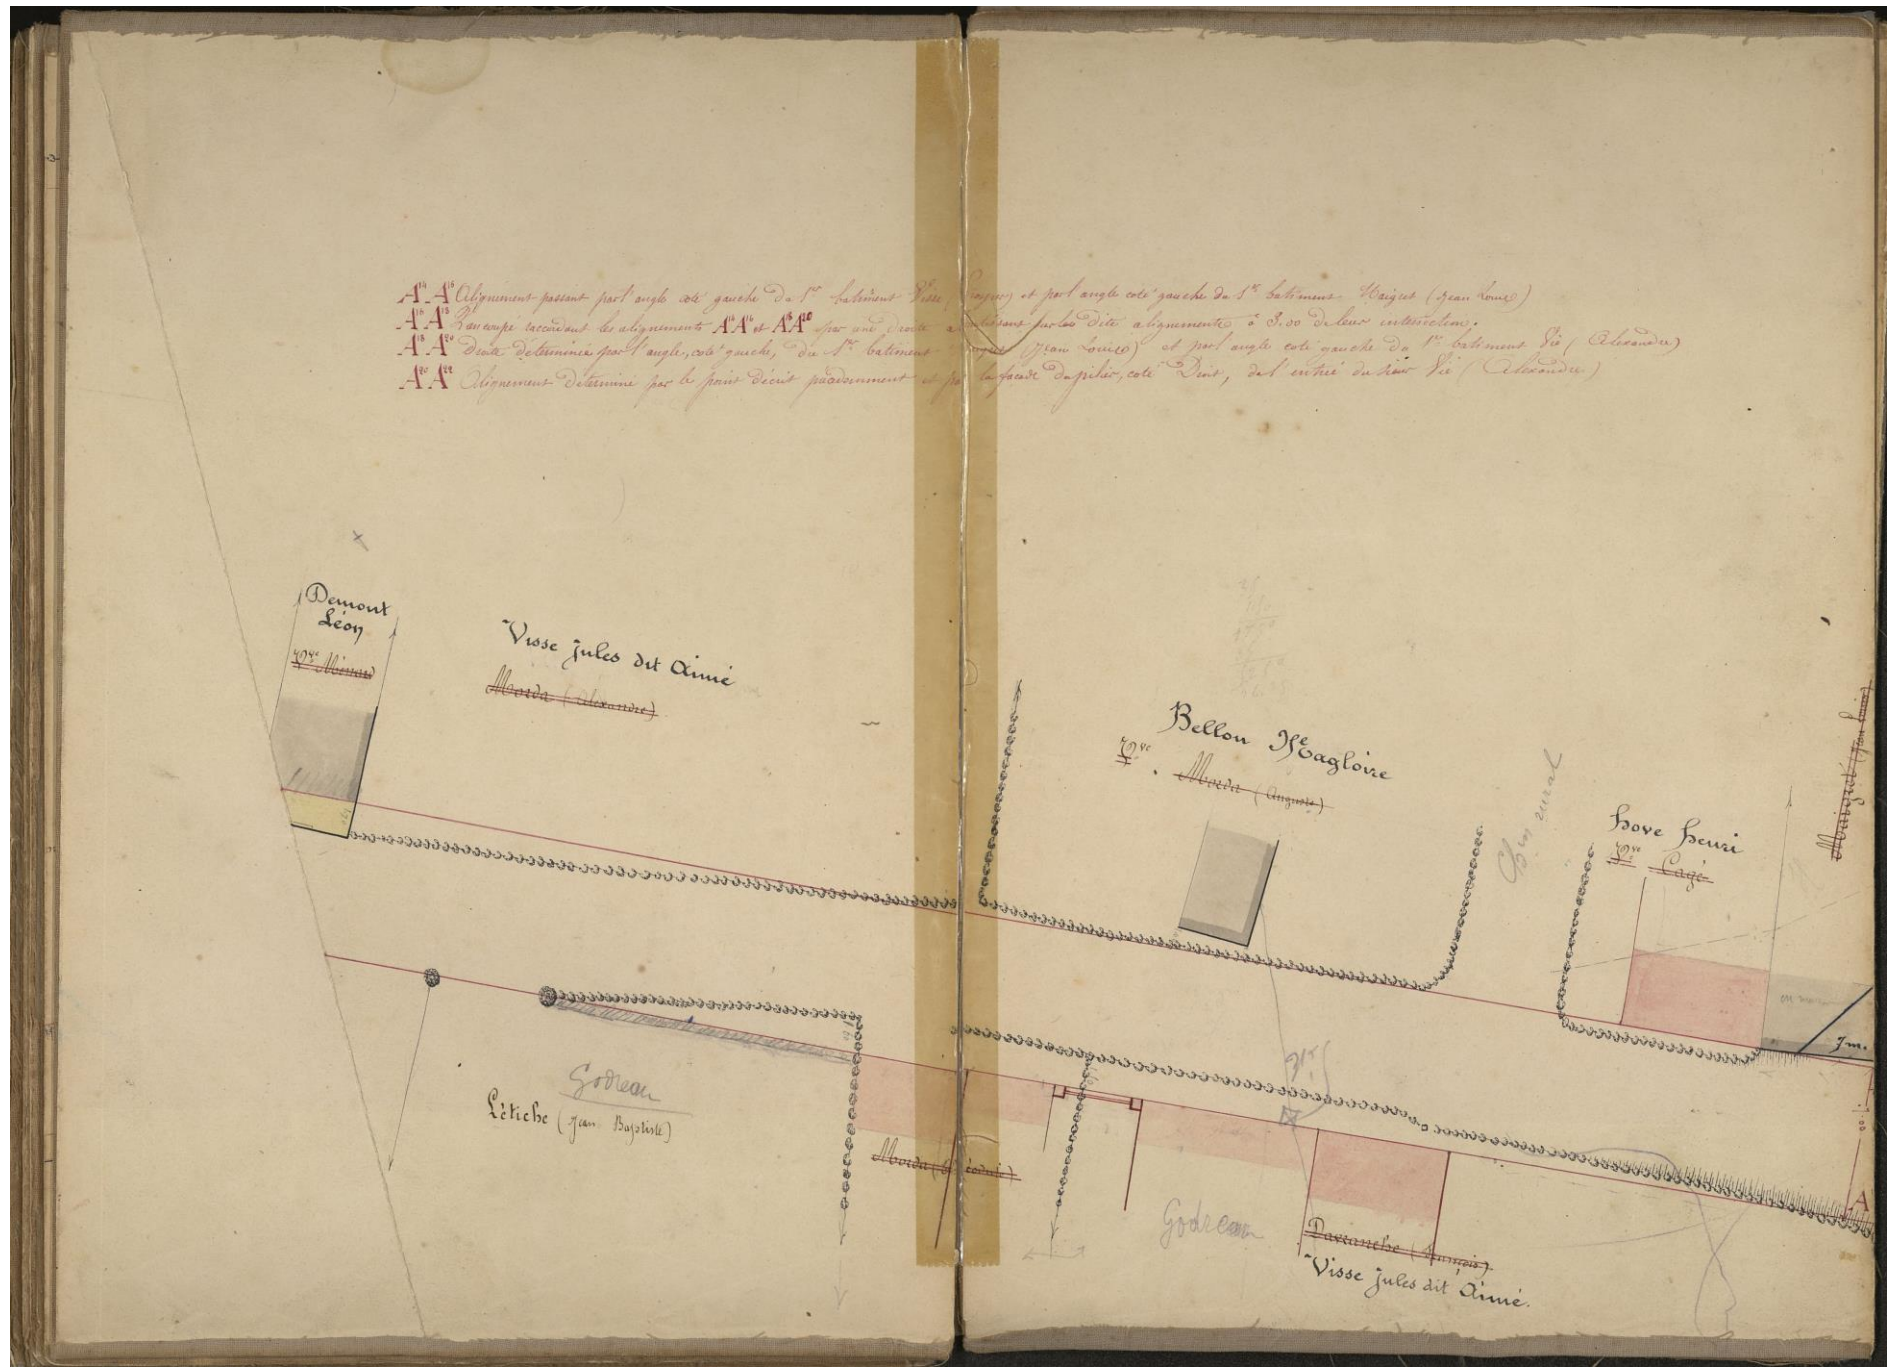 A¹⁴ A¹⁶ Alignement passant par l'angle coté gauche du 1er batiment Visse et par l'angle coté gauche du 1er batiment Haiguet (Jean Louis)
A¹⁶ A¹⁸ Pan coupé raccordant les alignements A¹⁴ A¹⁶ et A¹⁸ A²⁰ par une droite aboutissant sur les dits alignements à 3.00 de leur intersection.
A¹⁸ A²⁰ droite déterminée par l'angle, coté gauche, du 1er batiment (Jean Louis) et par l'angle coté gauche du 1er batiment Vié (Alexandre)
A²⁰ A²² Alignement déterminé par le point décrit précédemment et par la façade du pilier, coté Droit, de l'entrée du sieur Vié (Alexandre)
Demont
Léon
Vve Ménard
Visse jules dit Aimé
Morda (Alexandre)
Bellon Magloire
Vve Morda (Auguste)
Ch in rural
hove henri
Vve Cagé
(Jean Louis)
7 m.
Godreau
Létiche (Jean Baptiste)
Morda
Godreau
Darranche (François)
Visse jules dit Aimé.
A